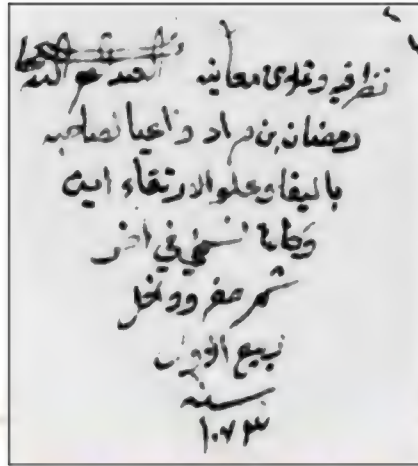 نظر فيه وتملى معانيه العبد
رمضان بن مراد داعيا لصاحبه
بالبقا وعلو الارتقاء امين
وكان نسخي في اخر
شهر صفر ودخل
ربيع الاول
سنه
١٠٧٣